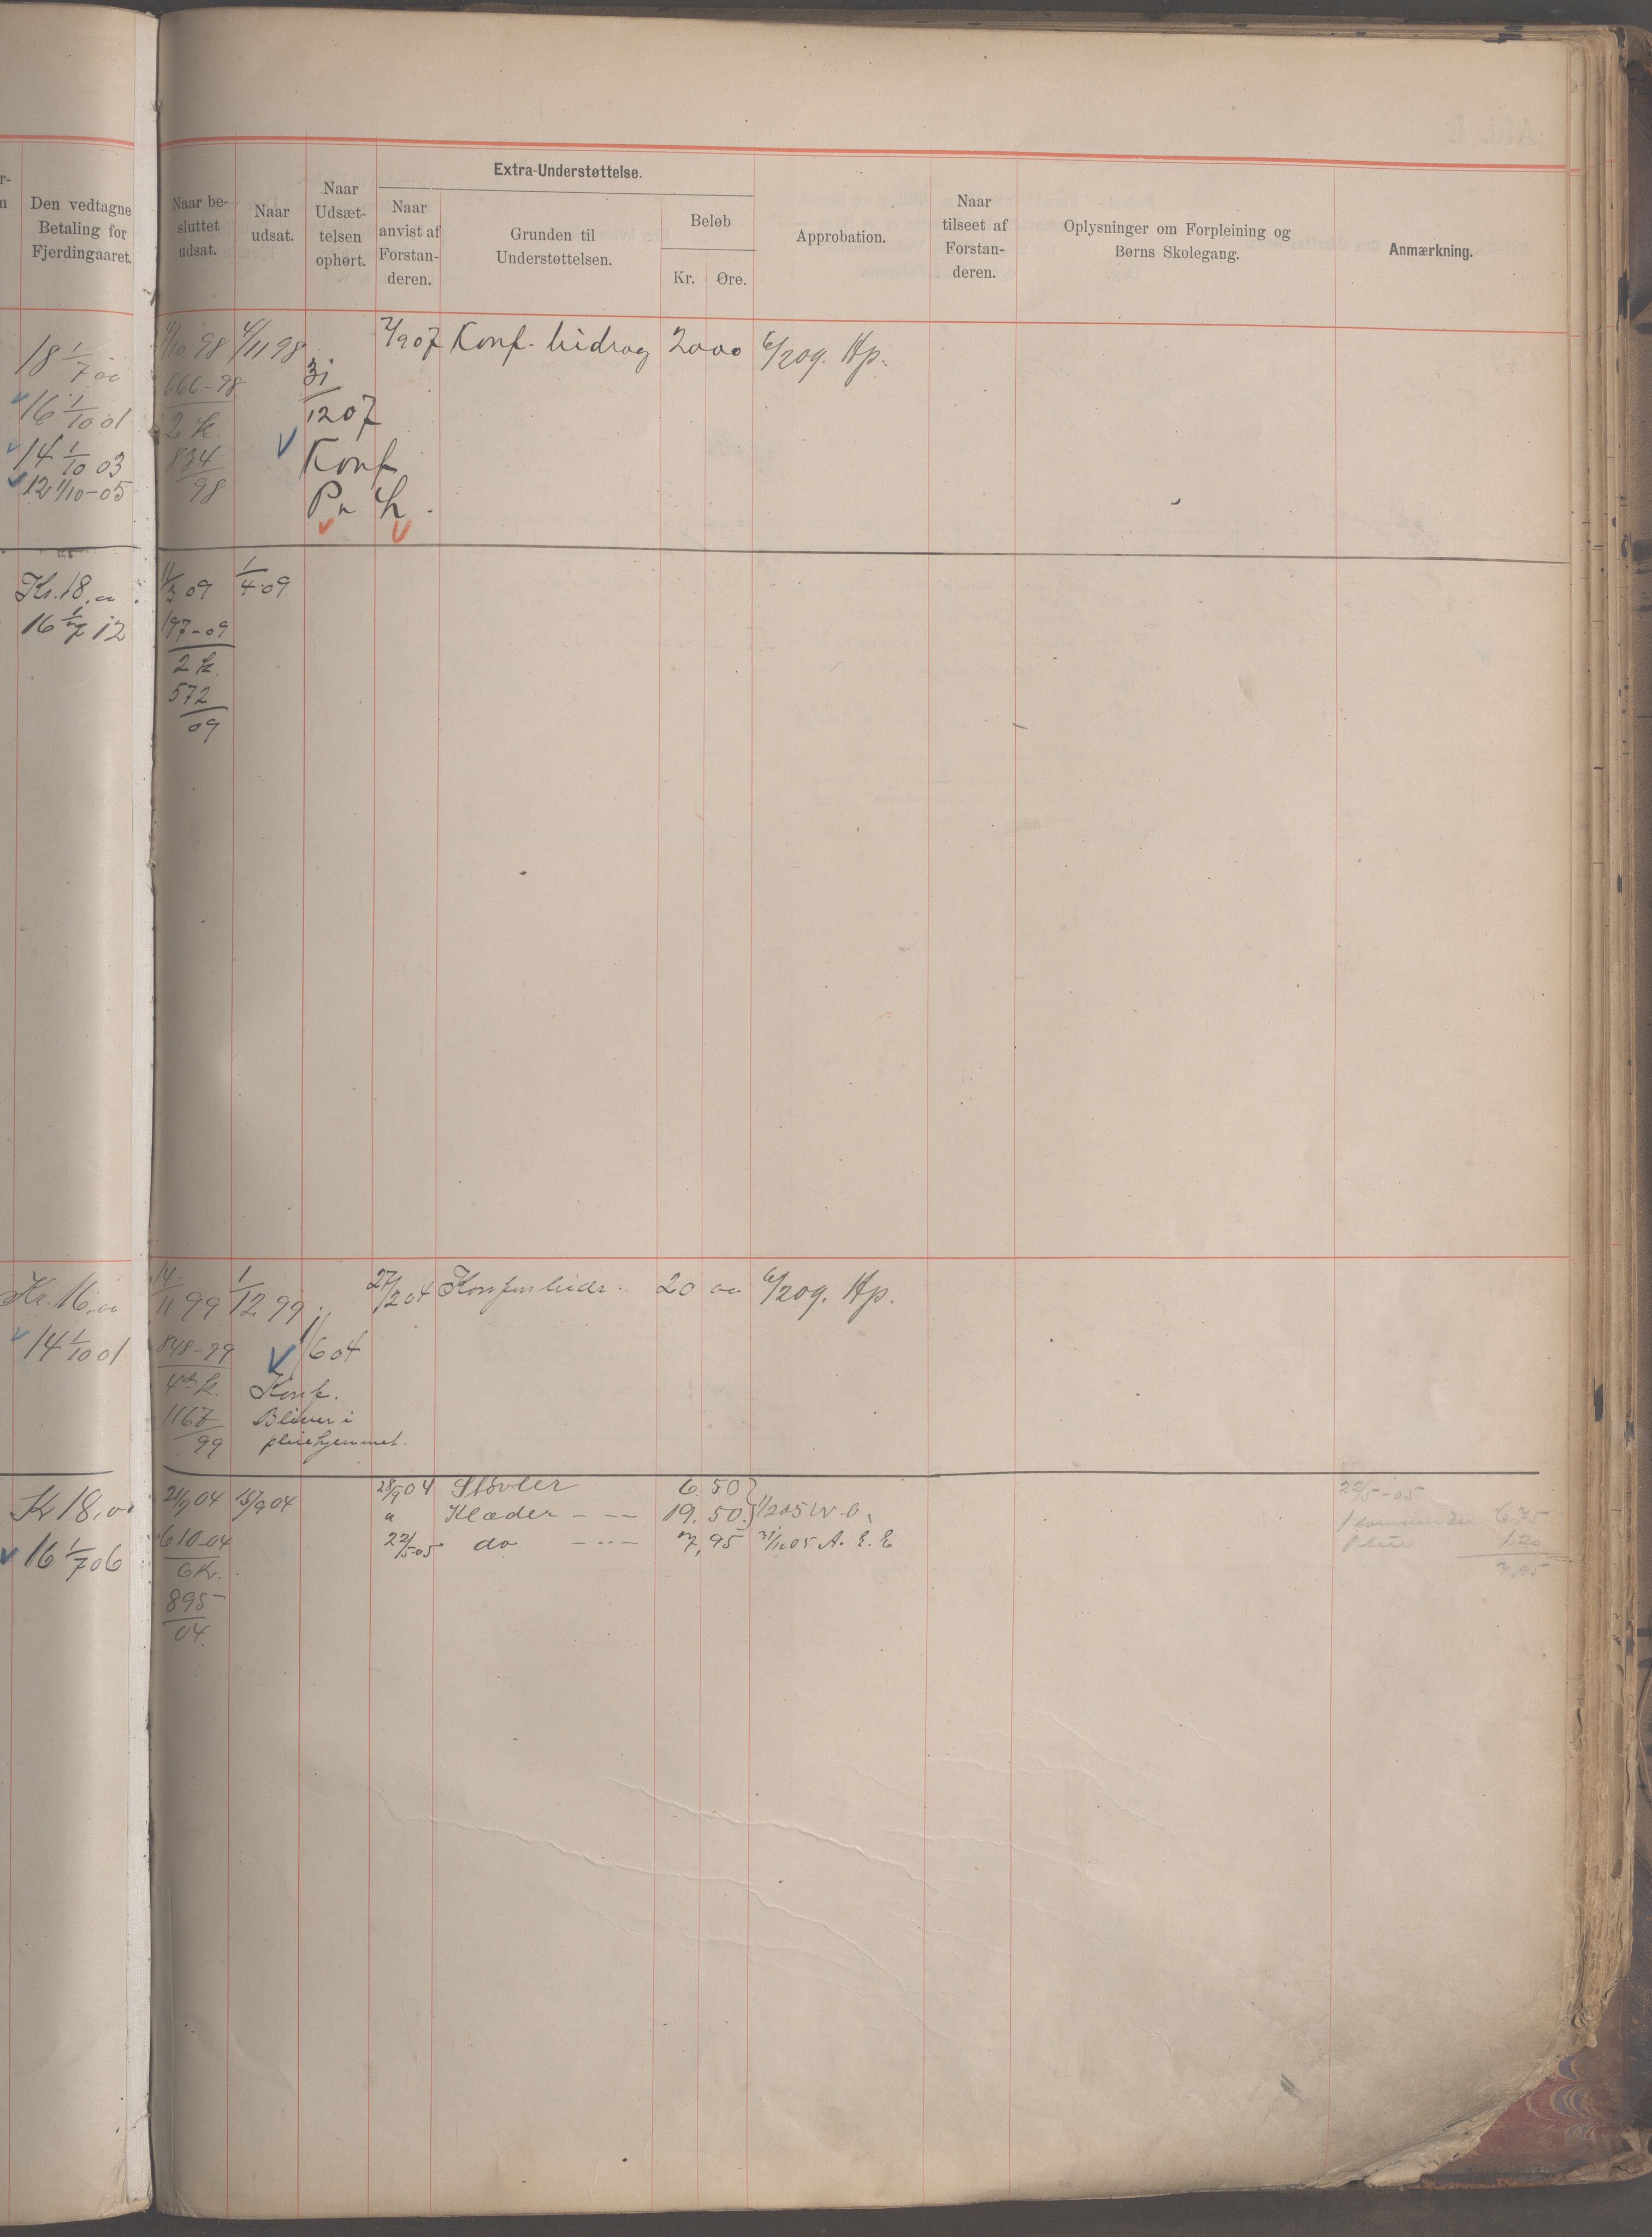 Den vedtagne
Betaling for
Fjerdingaaret.
Naar be-
sluttet
udsat.
Naar
udsat.
Naar
Udsæt-
telsen
ophørt.
Extra-Understøttelse.
Naar
anvist af
Forstan-
deren.
Grunden til
Understøttelsen.
Beløb
Kr. Øre.
Approbation.
Naar
tilseet af
Forstan-
deren.
Oplysninger om Forpleining og
Børns Skolegang.
Anmærkning.
18 1/7 00
16 1/10 01
14 1/10 03
12 1/10-05
4/10 98 4/11 98
666-98
2 k.
834
98
31
12 07
Konf
7/9 07 Konf. bidrag 20 00 6/2 09. Hp.
Kr. 18.00
16 1/7 12
11/3 09 1/4 09
197-09
2 k.
572
09
Kr. 16,00
14 1/10 01
14/11 99 1/12 99
848-99
4de k.
1167
99
1/6 04
Konf.
Bliver i
pleiehjemmet.
27/2 04 Konfm bidr. 20 00 6/2 09. Hp.
Kr 18,00
16 1/7 06
21/9 04 15/9 04
610-04
6 k.
895
04.
28/9 04 Støvler 6. 50
" Klæder - -- 19. 50. 1/2 05 W. O.
22/5-05 do - -- 7,95 31/12 05 A. E. E
22/5-05
6.75
1.20
7,95